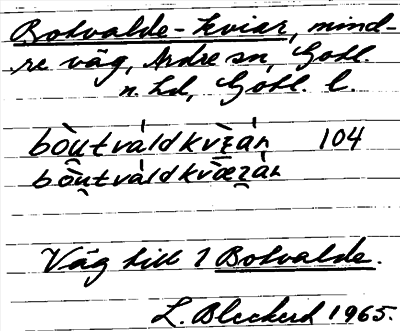 Botvalde-kviar, mind-
re väg, Ardre sn, Gotl.
n. hd, Gotl. l.
bò̀u̯tváldkvɪ̀ʓán 104
bò̀u̯tváldkvæ̀ʓán
Väg till 1 Botvalde.
L. Bleckert 1965.